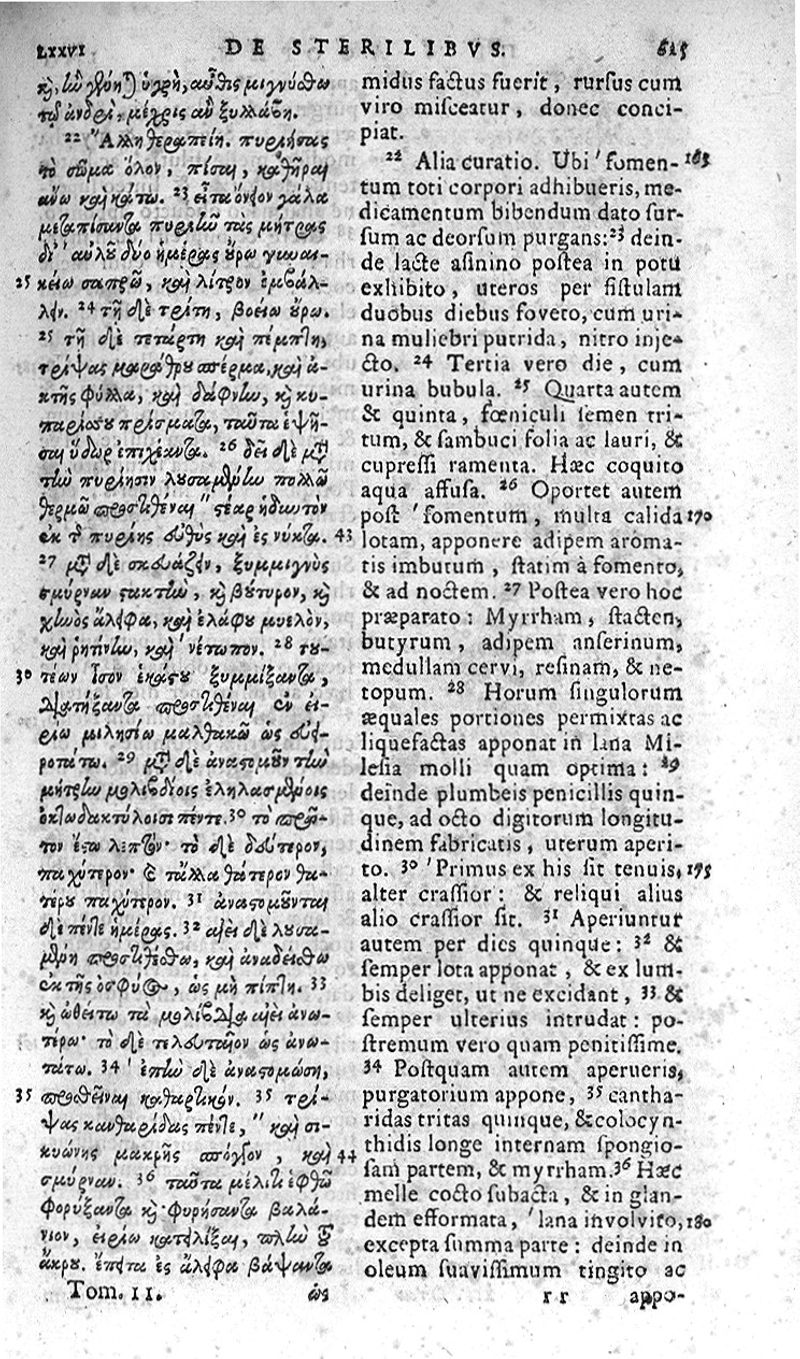 LXXVI DE STERILIBVS. 615
καὶ, ἢν γένηται ὑγρὴ, αὖθις μιγνύσθω
τῷ ἀνδρὶ, μέχρις ἂν ξυλλάβῃ.
22 "Ἄλλη θεραπείη. πυριήσας
τὸ σῶμα ὅλον, πῖσαι, καθῆραι
ἄνω καὶ κάτω. 23 εἶτα ὄνειον γάλα
μεταπίσαντα πυριῆν τὰς μήτρας
δι' αὐλοῦ δύο ἡμέρας οὔρῳ γυναι-
25 κείῳ σαπρῷ, καὶ λίτρον ἐμβάλ-
λειν. 24 τῇ δὲ τρίτῃ, βοείῳ οὔρῳ.
25 τῇ δὲ τετάρτῃ καὶ πέμπτῃ,
τρίψας μαράθρου σπέρμα, καὶ ἀ-
κτῆς φύλλα, καὶ δάφνην, καὶ κυ-
παρίσσου πρίσματα, ταῦτα ἑψῆ-
σαι ὕδωρ ἐπιχέαντα. 26 δεῖ δὲ μετὰ
τὴν πυρίησιν λουσαμένην πολλῷ
θερμῷ προστιθέναι " στέαρ ἡδυντὸν
ἐκ τῆς πυρίης εὐθὺς καὶ ἐς νύκτα. 43
27 μετὰ δὲ σκευάζειν, ξυμμιγνὺς
σμύρναν στακτὴν, καὶ βούτυρον, καὶ
χηνὸς ἄλειφα, καὶ ἐλάφου μυελὸν,
καὶ ῥητίνην, καὶ ' νέτωπον. 28 του-
30 τέων ἶσον ἑκάστου ξυμμίξαντα,
διατήξαντα προστιθέναι ἐν εἰ-
ρίῳ μιλησίῳ μαλθακῷ ὡς εὐει-
ροτάτῳ. 29 μετὰ δὲ ἀναστομοῦν τὴν
μήτρην μολιβδίοις ἐληλασμένοις
ὀκτωδακτύλοισι πέντε. 30 τὸ πρῶ-
τον ἔστω λεπτόν· τὸ δὲ δεύτερον,
παχύτερον· καὶ τἄλλα θάτερον θα-
τέρου παχύτερον. 31 ἀναστομοῦνται
δὲ πέντε ἡμέρας. 32 αἰεὶ δὲ λουσα-
μένη προστιθέσθω, καὶ ἀναδείσθω
ἐκ τῆς ὀσφύος, ὡς μὴ πίπτῃ. 33
καὶ ὠθείτω τὰ μολίβδια αἰεὶ ἀνω-
τέρω· τὸ δὲ τελευταῖον ὡς ἀνω-
τάτω. 34 ' ἐπὴν δὲ ἀναστομώσῃ,
35 προσθεῖναι καθαρτικόν. 35 τρί-
ψας κανθαρίδας πέντε, " καὶ σι-
κυώνης μακρῆς σπόγγον, καὶ 44
σμύρναν. 36 ταῦτα μέλιτι ἑφθῷ
φορύξαντα καὶ· φυρήσαντα βαλά-
νιον, εἰρίῳ κατελίξαι, πλὴν τοῦ
ἄκρου. ἔπειτα ἐς ἄλειφα βάψαντα
ὡς
midus factus fuerit, rursus cum
viro misceatur, donec conci-
piat.
22 Alia curatio. Ubi ' fomen- 165
tum toti corpori adhibueris, me-
dicamentum bibendum dato sur-
sum ac deorsum purgans: 23 dein-
de lacte asinino postea in potu
exhibito, uteros per fistulam
duobus diebus foveto, cum uri-
na muliebri putrida, nitro inje-
cto. 24 Tertia vero die, cum
urina bubula. 25 Quarta autem
& quinta, fœniculi semen tri-
tum, & sambuci folia ac lauri, &
cupressi ramenta. Hæc coquito
aqua affusa. 26 Oportet autem
post ' fomentum, multa calida 170
lotam, apponere adipem aroma-
tis imbutum, statim à fomento,
& ad noctem. 27 Postea vero hoc
præparato: Myrrham, stacten,
butyrum, adipem anserinum,
medullam cervi, resinam, & ne-
topum. 28 Horum singulorum
æquales portiones permixtas ac
liquefactas apponat in lana Mi-
lesia molli quam optima: 29
deinde plumbeis penicillis quin-
que, ad octo digitorum longitu-
dinem fabricatis, uterum aperi-
to. 30 ' Primus ex his sit tenuis, 175
alter crassior: & reliqui alius
alio crassior sit. 31 Aperiuntur
autem per dies quinque: 32 &
semper lota apponat, & ex lum-
bis deliget, ut ne excidant, 33 &
semper ulterius intrudat: po-
stremum vero quam penitissime.
34 Postquam autem aperueris,
purgatorium appone, 35 cantha-
ridas tritas quinque, & colocyn-
thidis longe internam spongio-
sam partem, & myrrham. 36 Hæc
melle cocto subacta, & in glan-
dem efformata, ' lana involvito, 180
excepta summa parte: deinde in
oleum suavissimum tingito ac
Tom. II. r r appo-